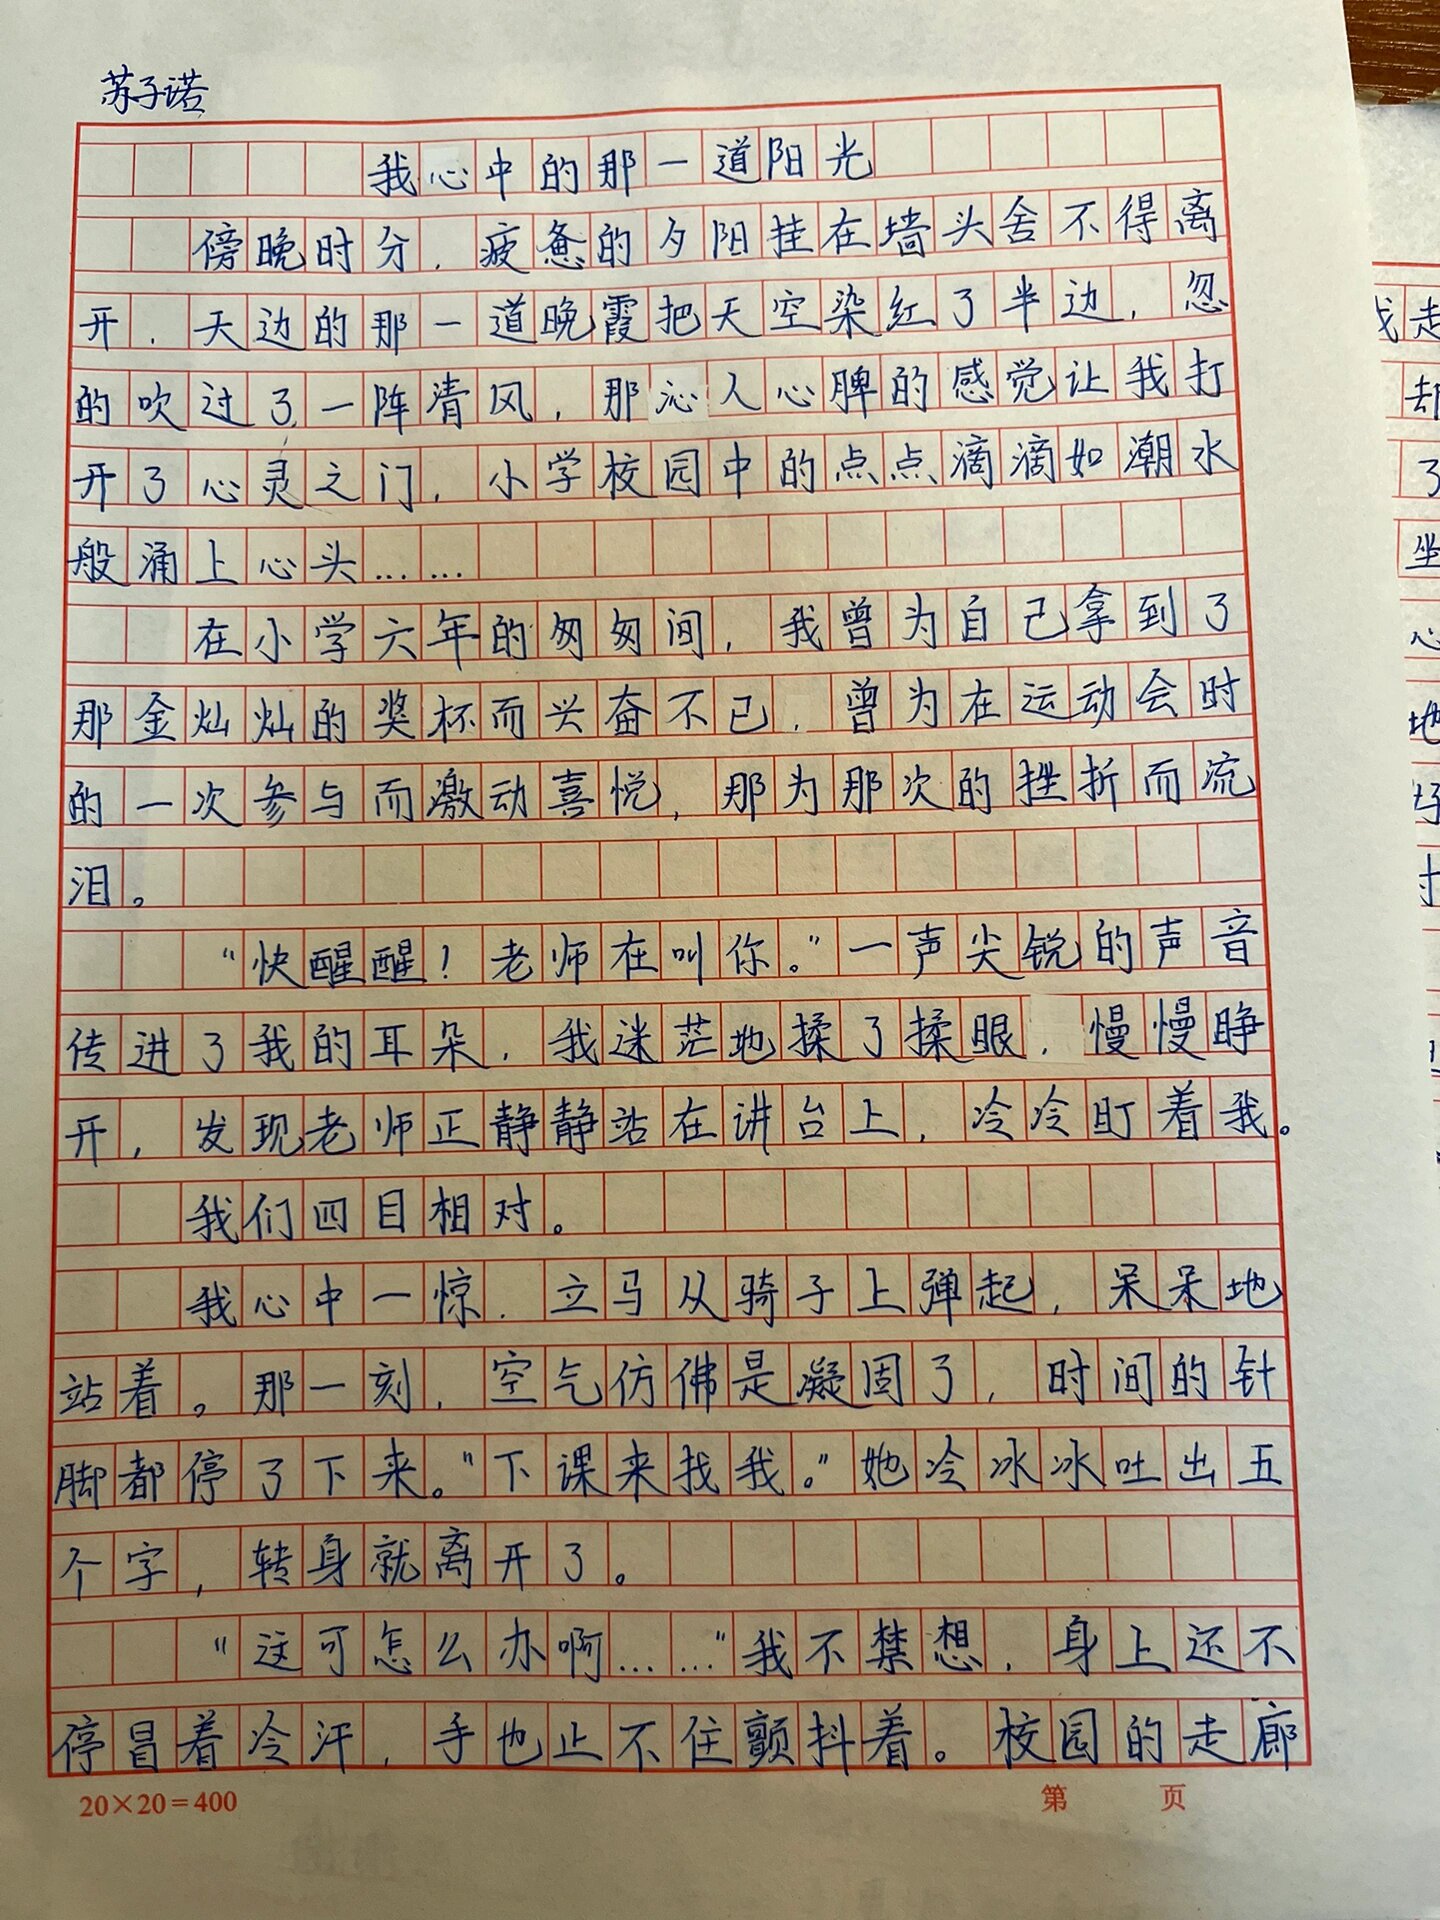 苏子诺
我心中的那一道阳光
傍晚时分，疲惫的夕阳挂在墙头舍不得离
开，天边的那一道晚霞把天空染红了半边，忽
的吹过了一阵清风，那沁人心脾的感觉让我打
开了心灵之门，小学校园中的点点滴滴如潮水
般涌上心头……
在小学六年的匆匆间，我曾为自己拿到了
那金灿灿的奖杯而兴奋不已，曾为在运动会时
的一次参与而激动喜悦，那为那次的挫折而流
泪。
“快醒醒！老师在叫你。”一声尖锐的声音
传进了我的耳朵，我迷茫地揉了揉眼，慢慢睁
开，发现老师正静静站在讲台上，冷冷盯着我。
我们四目相对。
我心中一惊，立马从骑子上弹起，呆呆地
站着。那一刻，空气仿佛是凝固了，时间的针
脚都停了下来。“下课来找我。”她冷冰冰吐出五
个字，转身就离开了。
“这可怎么办啊……”我不禁想，身上还不
停冒着冷汗，手也止不住颤抖着。校园的走廊
20×20=400
第 页
我走
却
了
坐
心
地